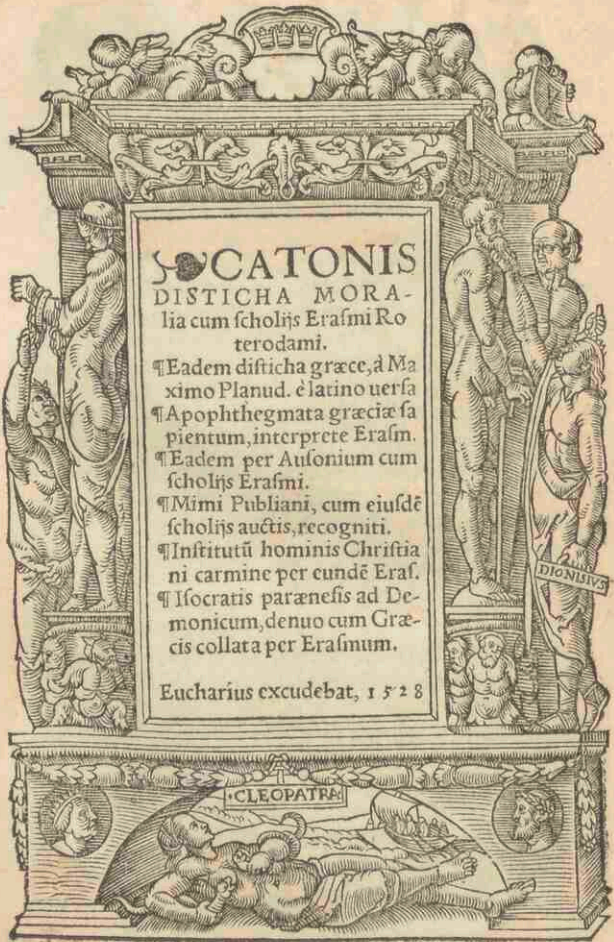 CATONIS
DISTICHA MORA-
lia cum ſcholijs Eraſmi Ro
terodami.
¶Eadem diſticha græce, à Ma
ximo Planud. è latino uerſa
¶Apophthegmata græciæ ſa
pientum, interprete Eraſm.
¶Eadem per Auſonium cum
ſcholijs Eraſmi.
¶Mimi Publiani, cum eiuſdē
ſcholijs auctis, recogniti.
¶Inſtitutū hominis Chriſtia
ni carmine per eundē Eraſ.
¶Iſocratis parænesis ad De-
monicum, denuo cum Græ-
cis collata per Eraſmum.
Eucharius excudebat, 1528
DIONISIVS
·CLEOPATRA·